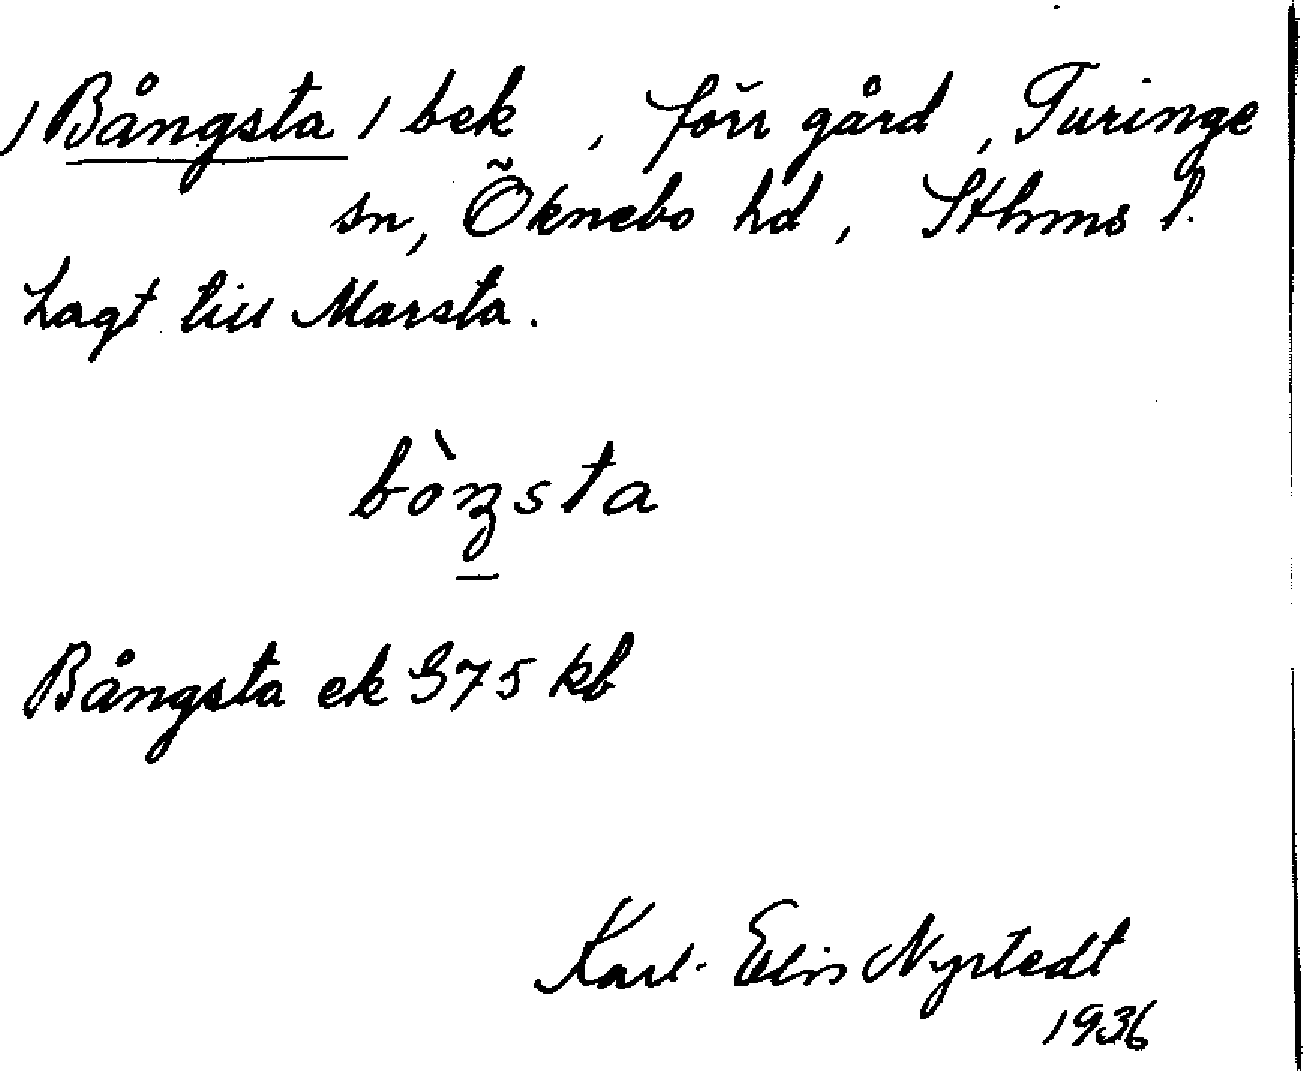 /Bångsta/ bek, förr gård, Turinge
sn, Öknebo hd, Sthms l.
Lagt till Marsta.
bòŋsta
Bångsta ek 375 kb
Karl-Elis Nystedt
1936